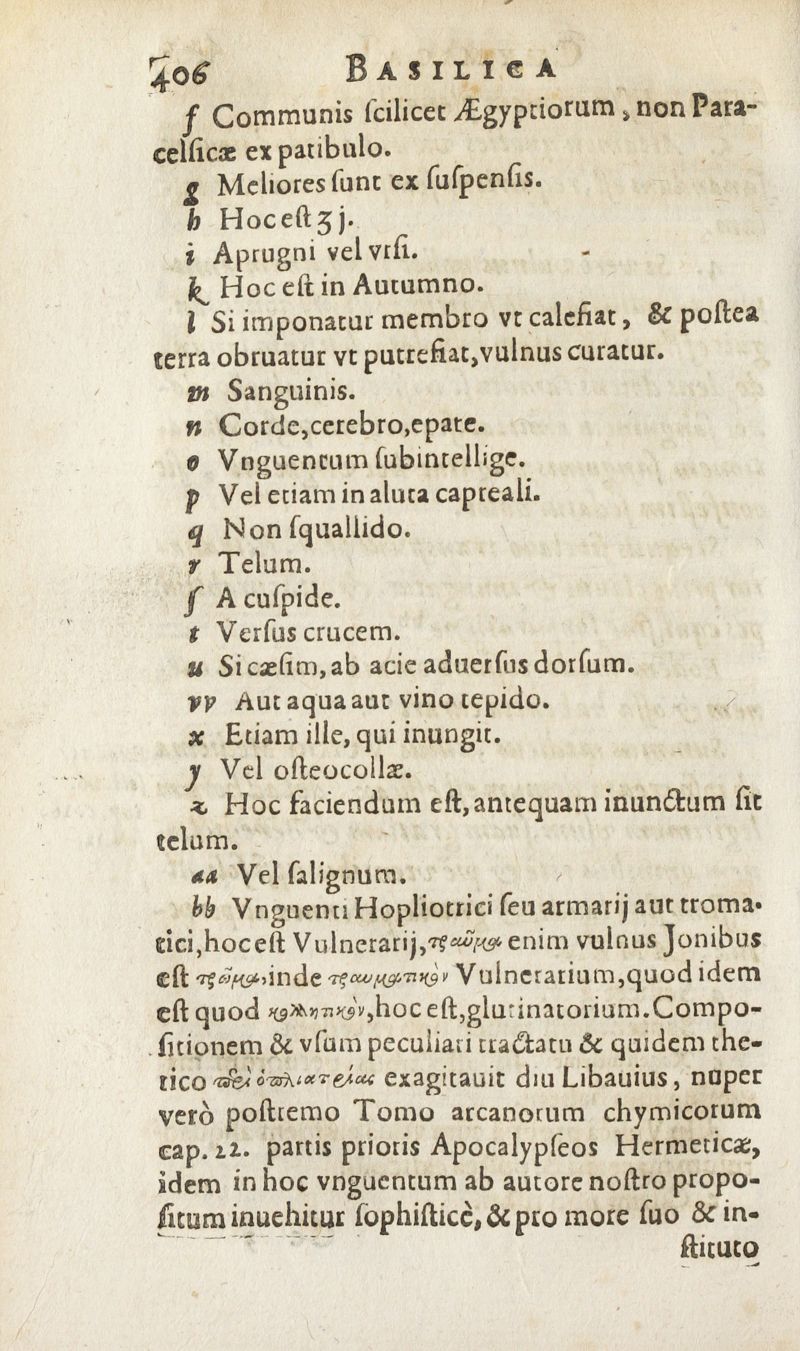 406 BASILICA
f Communis ſcilicet Ægyptiorum, non Para-
celſicæ ex patibulo.
g Meliores ſunt ex ſuſpenſis.
h Hoc eſt ʒ j.
i Aprugni vel vrſi.
k Hoc eſt in Autumno.
l Si imponatur membro vt calefiat, & poſtea
terra obruatur vt putrefiat, vulnus curatur.
m Sanguinis.
n Corde, cerebro, epate.
o Vnguentum ſubintellige.
p Vel etiam in aluta capreali.
q Non ſquallido.
r Telum.
ſ A cuſpide.
t Verſus crucem.
u Si cæſim, ab acie aduerſus dorſum.
vv Aut aqua aut vino tepido.
x Etiam ille, qui inungit.
y Vel oſteocollæ.
z Hoc faciendum eſt, antequam inunctum ſit
telum.
aa Vel ſalignum.
bb Vnguenti Hopliotrici ſeu armarij aut troma-
tici, hoc eſt Vulnerarij, τραῦμα enim vulnus Jonibus
eſt τρῶμα, inde τρωματικὸν Vulnerarium, quod idem
eſt quod κολλητικὸν, hoc eſt, glutinatorium. Compo-
ſitionem & vſum peculiari tractatu & quidem the-
rico exagitauit diu Libauius, nuper
verò poſtremo Tomo arcanorum chymicorum
cap. 22. partis prioris Apocalypſeos Hermeticæ,
idem in hoc vnguentum ab autore noſtro propo-
ſitum inuehitur ſophiſticè, & pro more ſuo & in-
ſtituto